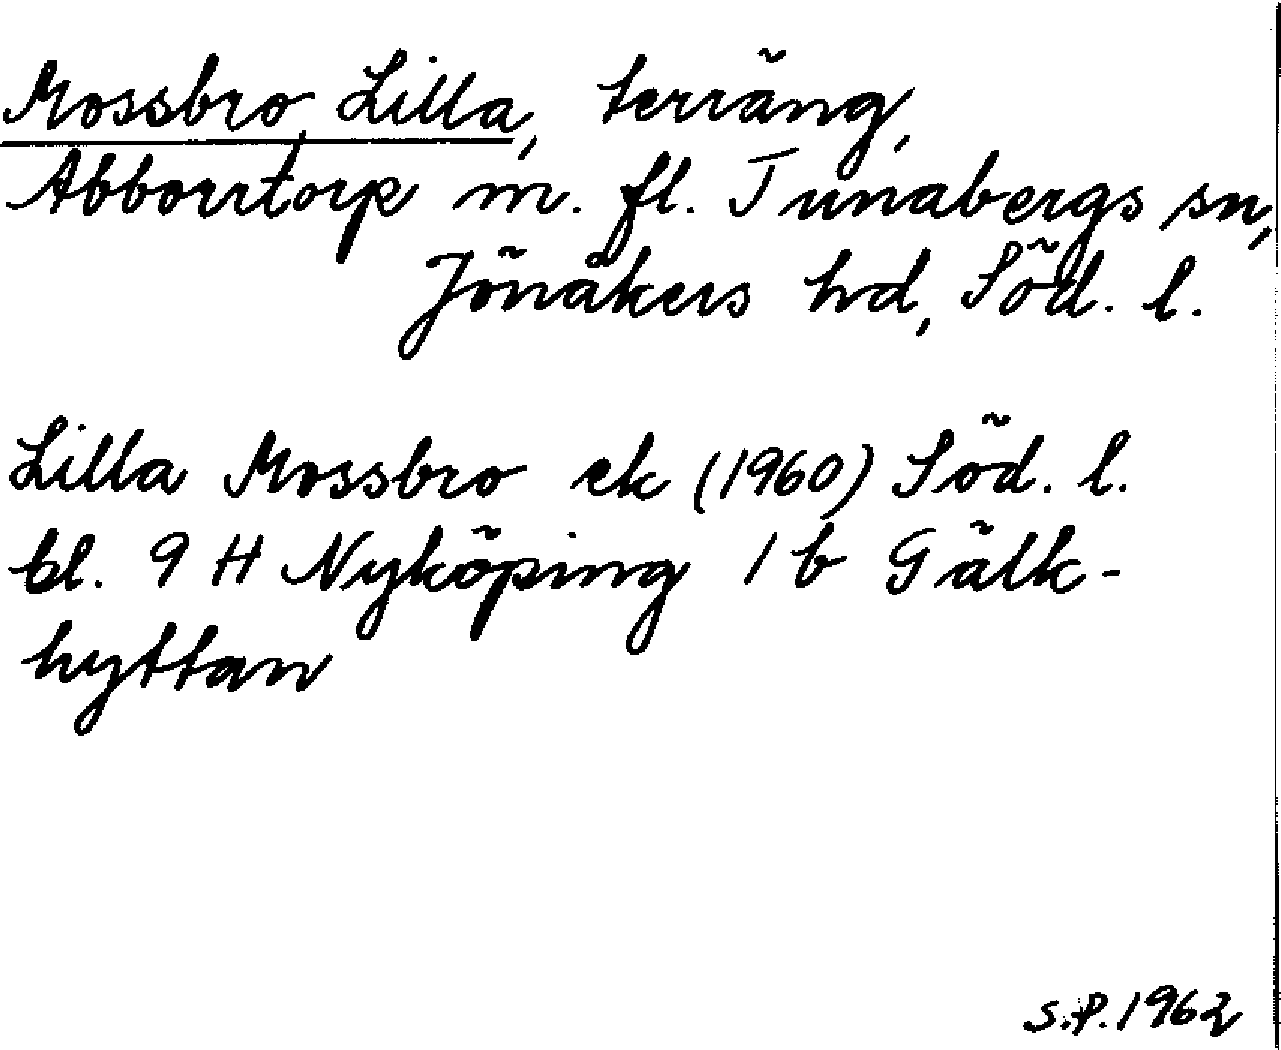 Mossbro, Lilla, terräng,
Abborrtorp m. fl. Tunabergs sn,
Jönåkers hd, Söd. l.
Lilla Mossbro ek (1960) Söd. l.
bl. 9 H Nyköping 1 b Gälk-
hyttan
S.P. 1962